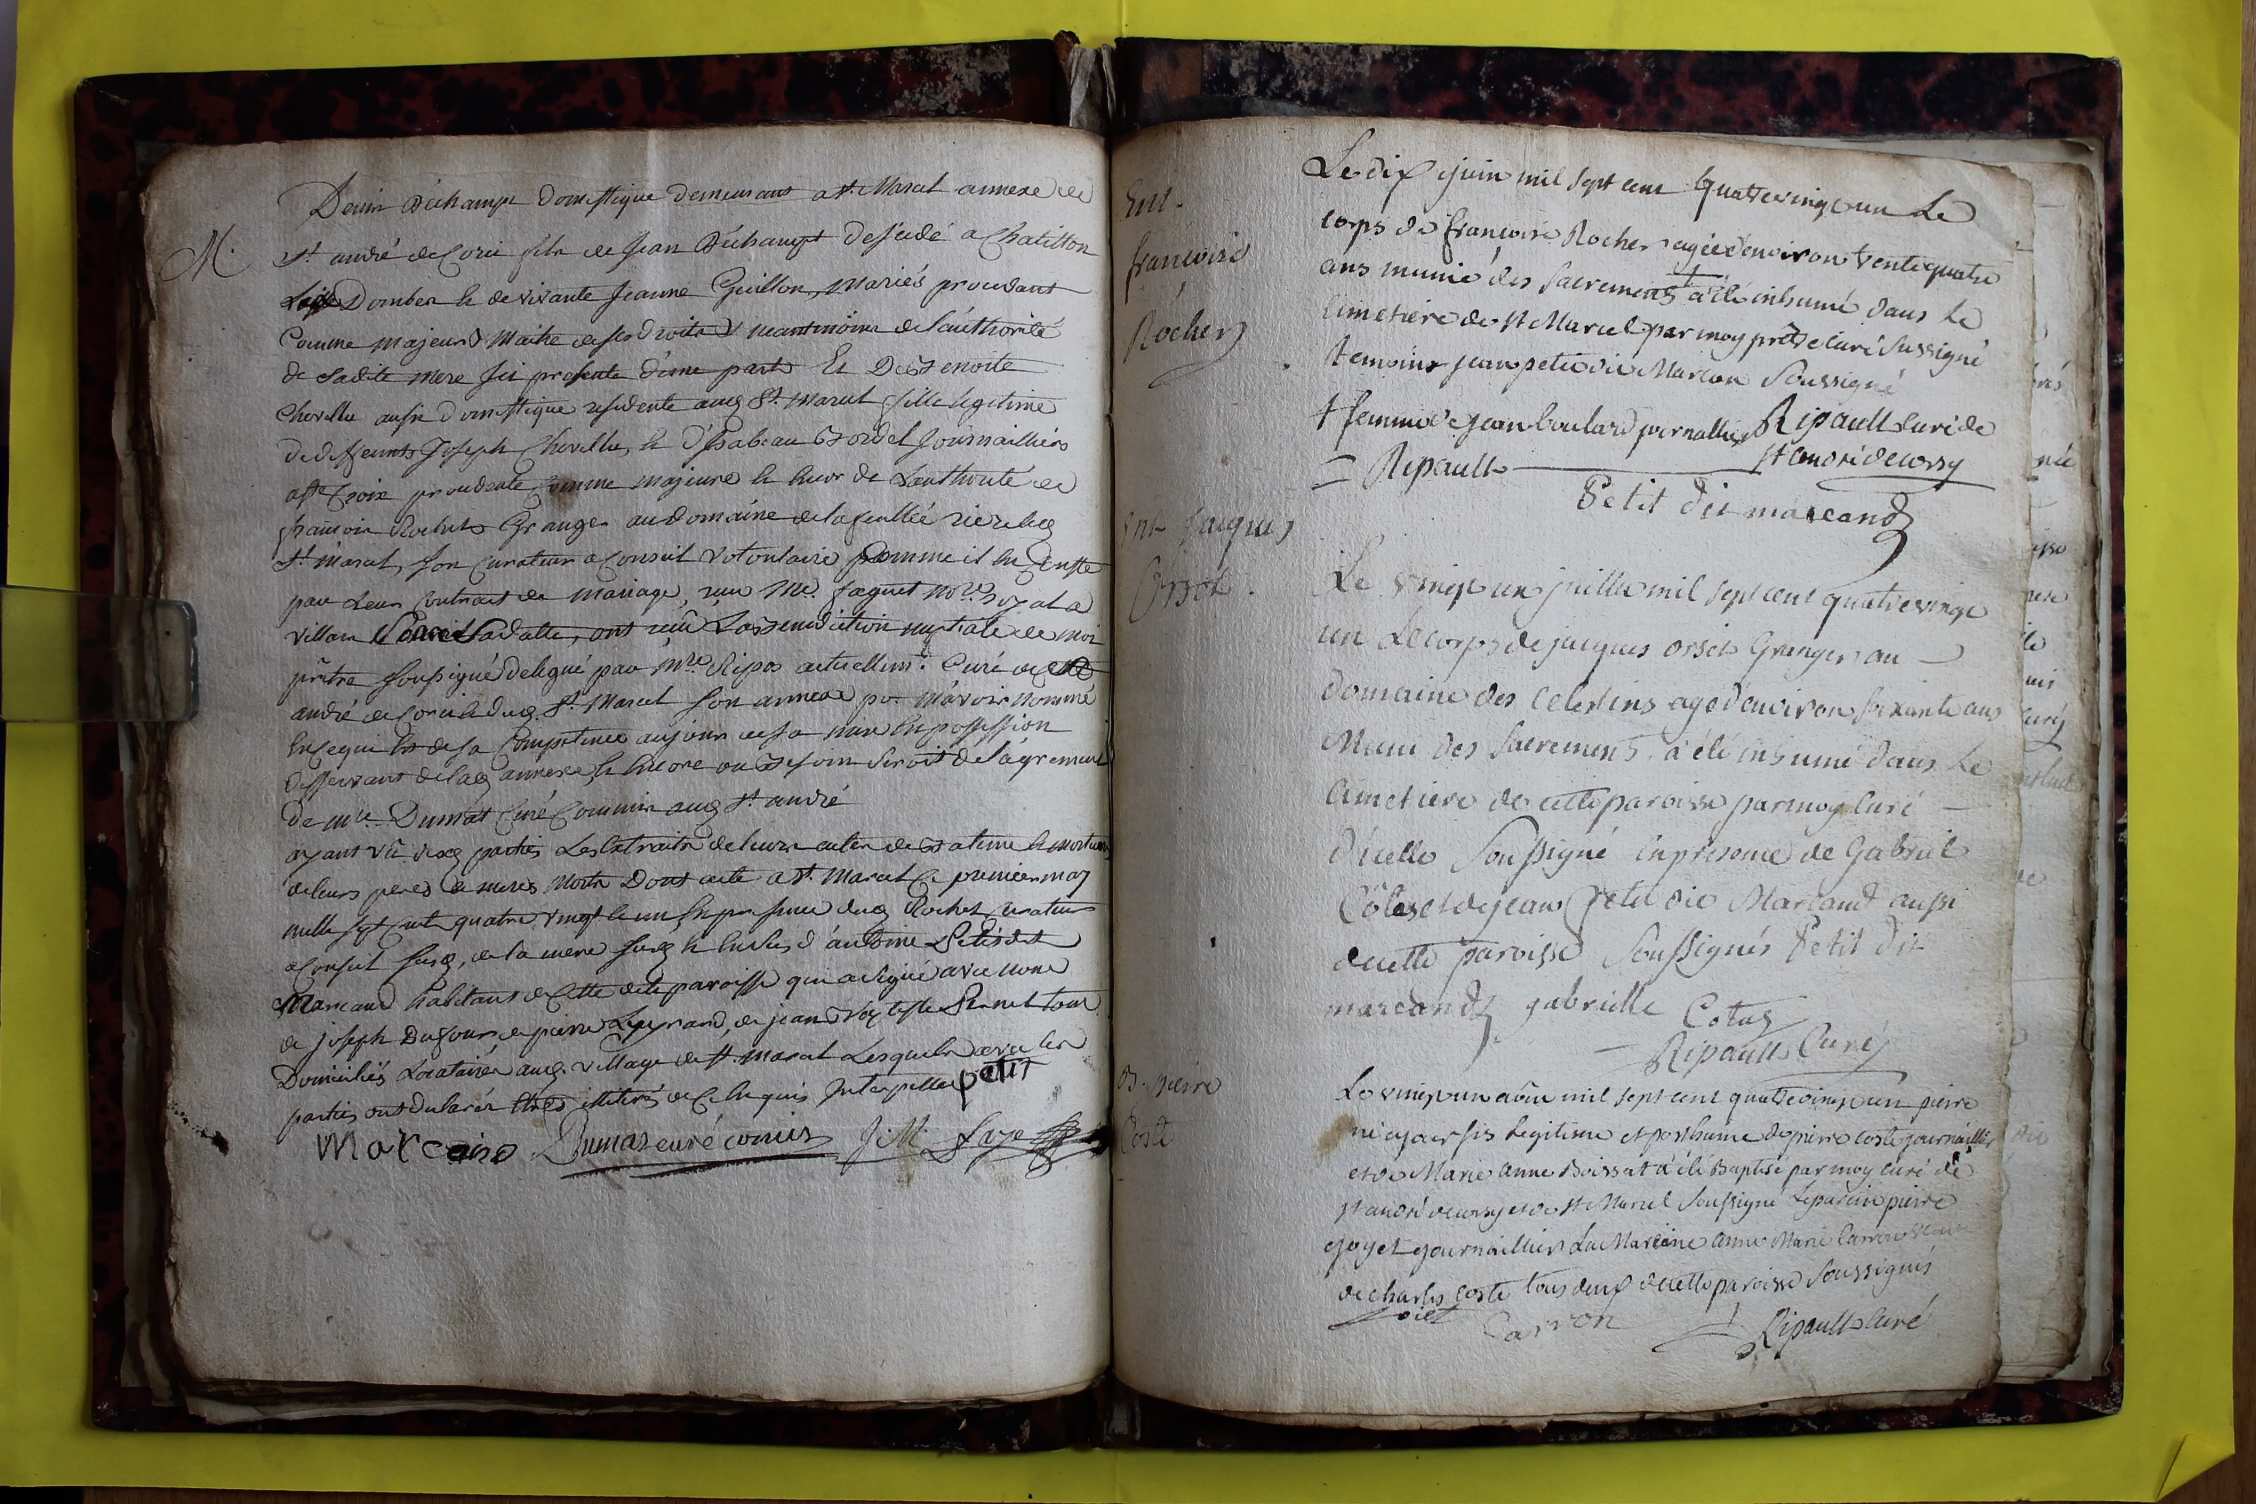 Denis Déchamps Domestique demeurant a St. Marcel annexe de
M.
St. andré de Corci fils de Jean Déchamps deçédé a Chatillon
Dombes & de vivante Jeanne Guillon, mariés procedant
Comme majeur & Maitre de ses droits & neantmoins de l'authorité
de sadite mere ici presente d'une part & Et Benoite
Chevellu aussi domestique residente aud. St. Marcel fille legitime
de deffeunts Joseph Chevellu, & d'isabeau Bordel Journailliers
procedente Comme majeure & de L'authorité de
françois Rochet Granger au domaine de la feuillée riere led.
St. Marcel, son Curateur a Conseil volontaire Comme il en Conste
par Leur Contrat de mariage, reçu Me. faguet nore. royal a
villars ont reçû La benediction nuptiale de moi
prêtre soussigné delegué par Mre. Ripos actuellemt. Curé de
andré de Corci & dud. St. Marcel son annexe
de sa Competence aujour de sa mise En possession
Desservant de lad. annexe, & encore au besoin seroit de l'agrement
de mre. Dumas Curé Commis aud. St. andré
ayant vû desd. parties Les Extraits de leurs actes de Bateme & mortuaires
de leurs peres & meres Morts Dont acte a St. Marcel Ce premier may
mille sept Cent quatre vingt & un En presence dud. Rochet Curateur
a Conseil susd, de la mere susd. & En sus d'antoine Petit dit
Marcand habitant de Cette dite paroisse qui a signé avec nous
de joseph Dufour, de pierre Leyrard, de jean Baptiste Pernet tous
Domiciliés Locataires aud. village de St. Marcel Lesquels avec les
parties ont declaré être illiterés de Ce Enquis Interpellés petit
Marcand Dumas curé comis J. M. Faye
Ent.
francoise
Rocher
Le dix juin mil sept cent quatrevingt un Le
corps de francoise Rocher agée d'environ trente quatre
ans munie des Sacrements † a été inhumé dans le
Cimetiere de St Marcel par moy prêtre curé Sussigné
temoins jean petit dit Marcan Soussigné
† femme de jean boulard journallier Ripault curé de
Ripault St andré de corsy
Petit dit marcand
Ent. Jacques
Orset
Le vingt un juillet mil sept cent quatrevingt
un Le corps de jacques orset Granger au
domaine des Celestins agé d'environ soixante ans
Muni des Sacrements a été inhumé dans Le
Cimetiere de cette paroisse par moy curé
d'icelle Soussigné en presence de Gabriel
Côtas et de jean Petit dit Marcand aussi
de cette paroisse Soussignés Petit dit
marcand gabrielle Cotas
Ripault Curé
B. pierre
Coste
Le vingt un août mil sept cent quatrevingt un pierre
né a jour fils Legitime et posthume de pierre coste journaillier
et de Marie anne Boissat a été Baptisé par moy curé de
St andré de corsy et de St Marcel Soussigné Le parein pierre
goyet journaillier La Mareine anne Marie Carron veuve
de charles coste tous deux de cette paroisse Soussignés
Carron
Ripault curé